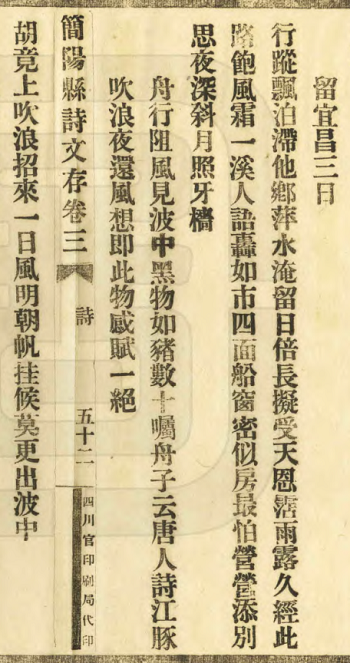 留宜昌三日
行蹤飄泊滯他鄉萍水淹留日倍長擬受天恩霑雨露久經此
路飽風霜一溪人語轟如市四面船窗密似房最怕營營添別
思夜深斜月照牙檣
舟行阻風見波中黑物如豬數十囑舟子云唐人詩江豚
吹浪夜還風想即此物感賦一絕
簡陽縣詩文存卷三
詩
五十二
四川官印刷局代印
胡竟上吹浪招來一日風明朝帆挂候莫更出波中